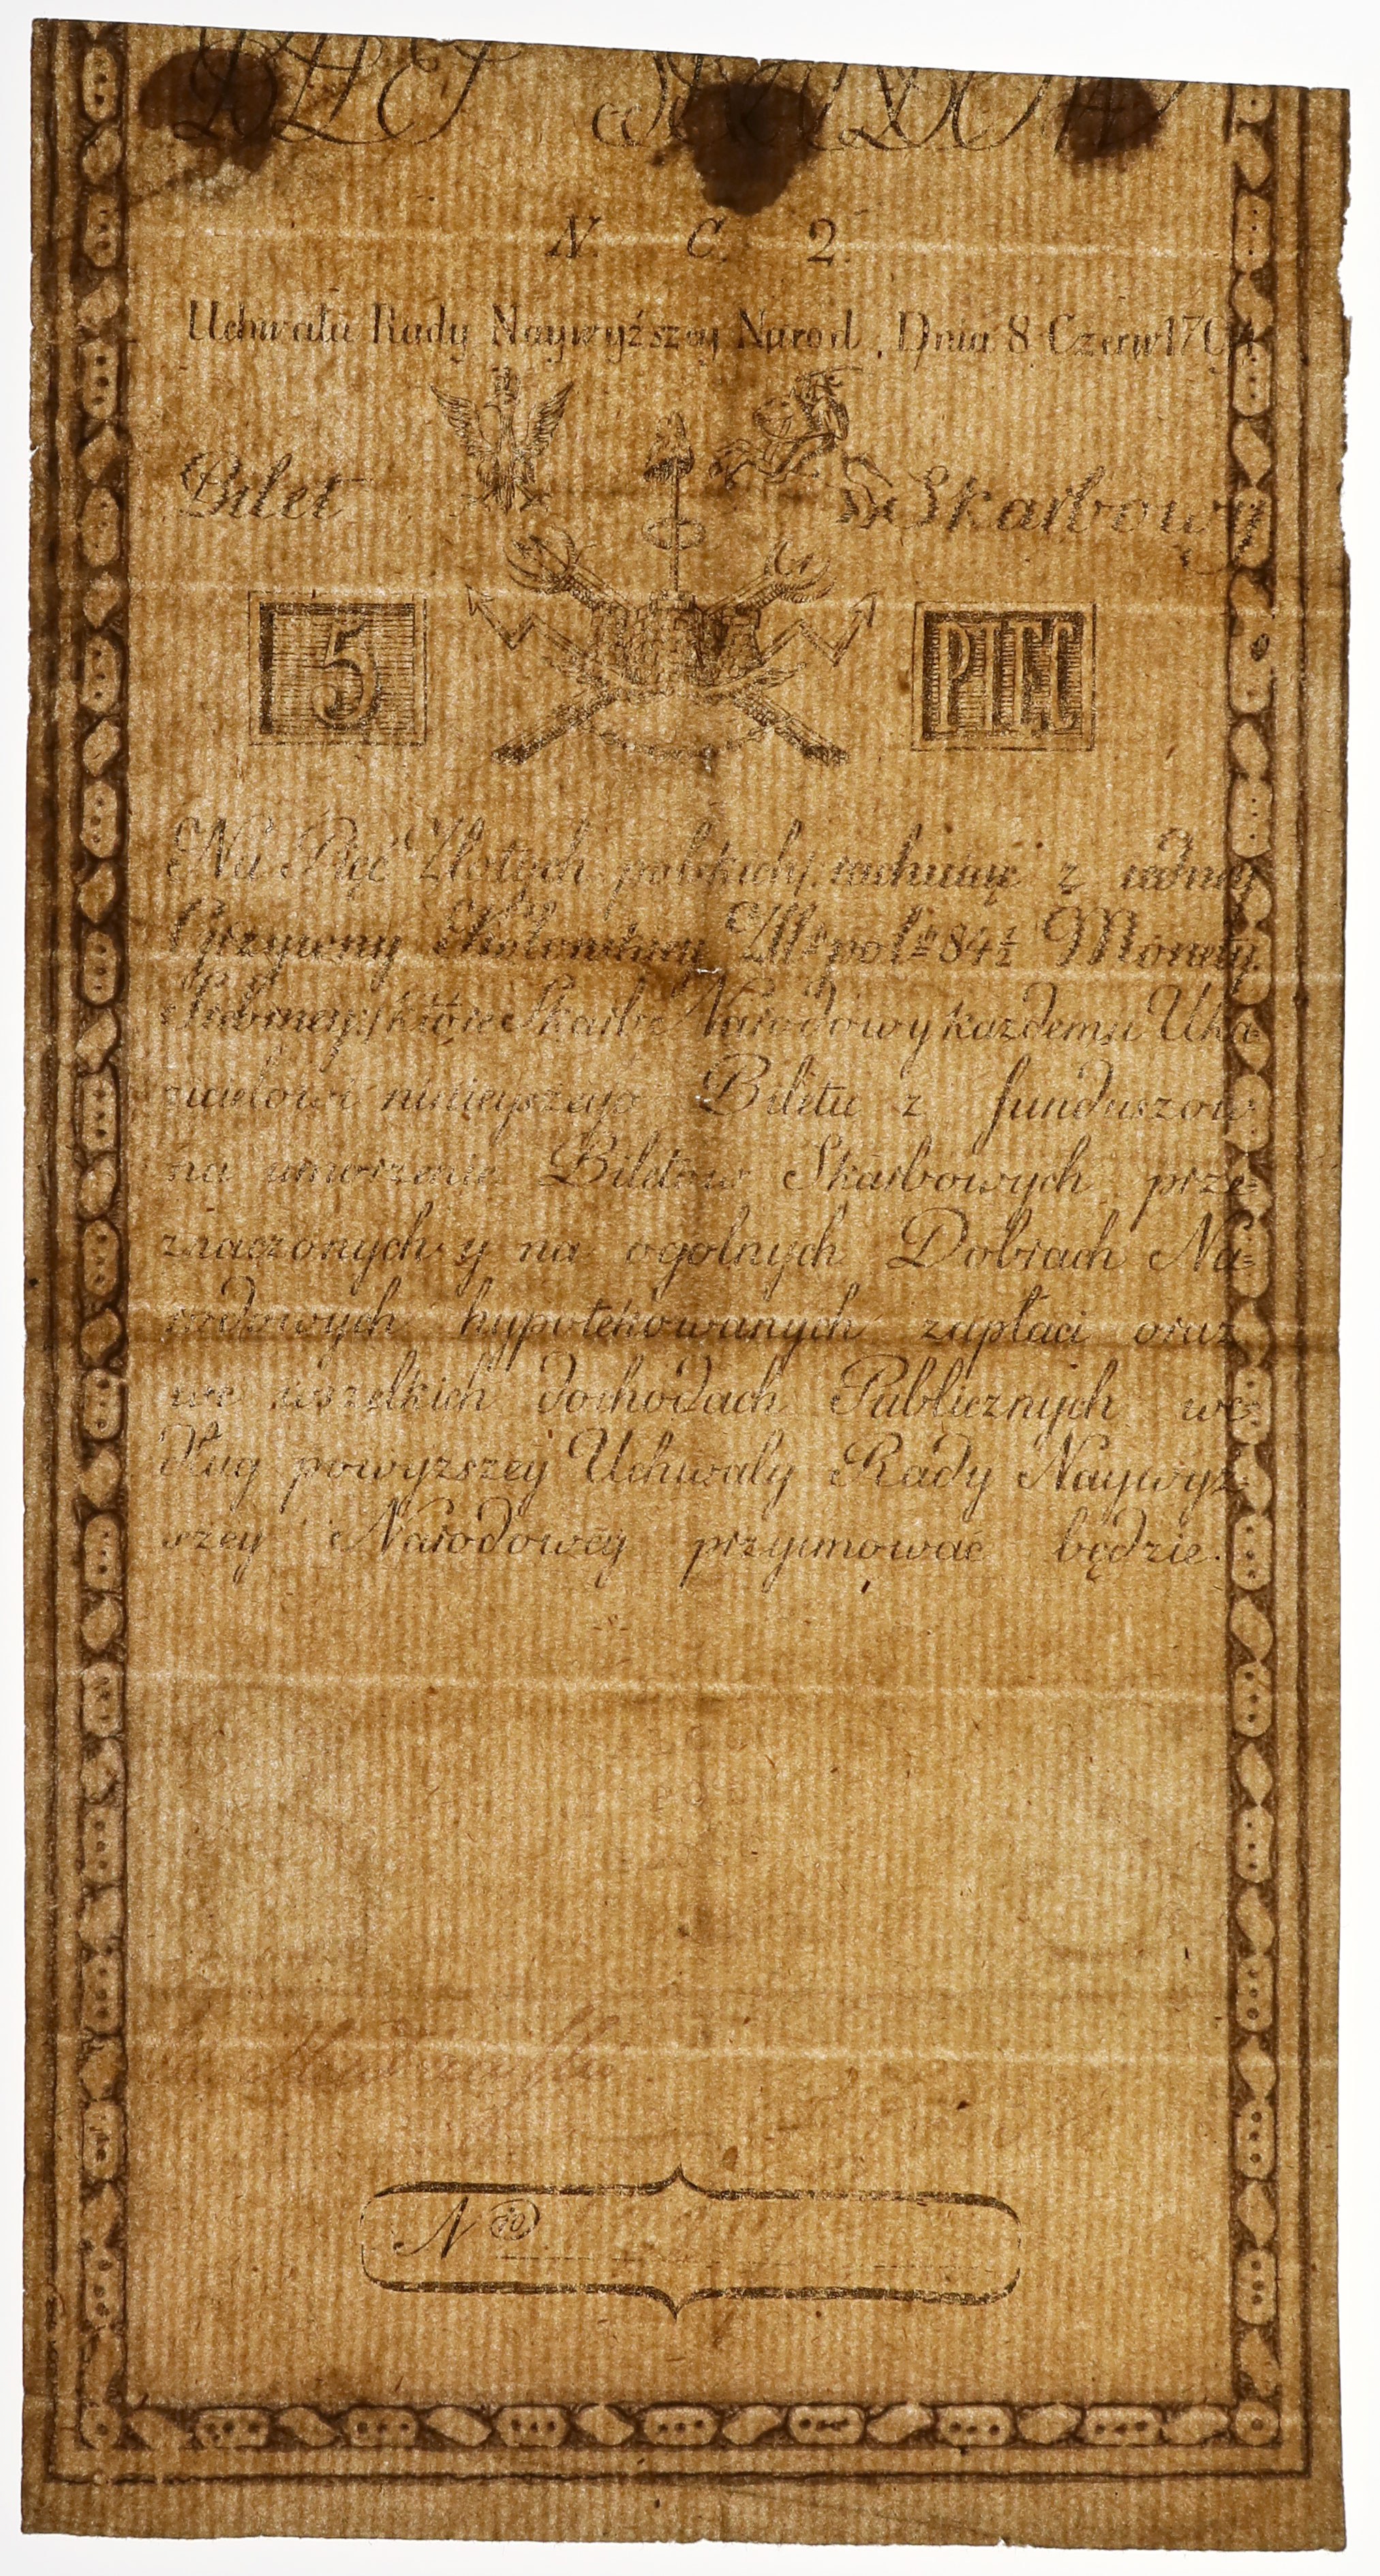 BILET SKARBOWY
N. C. 2.
Uchwała Rady Naywyższey Narod. Dnia 8 Czerw 1794
Bilet Skarbowy
5 PIĘĆ
Na Pięć Złotych polskich, rachując z iedney
Grzywny Kolońskiey Złł. pol. 84½ Monety
Srebrney, które Skarb Narodowy każdemu Uka=
zicielowi ninieyszego Biletu z funduszow
na umorzenie Biletow Skarbowych prze=
znaczonych y na ogolnych Dobrach Na=
rodowych hypotekowanych zapłaci oraz
we wszelkich dochodach Publicznych we=
dług powyższey Uchwały Rady Naywyż=
szey Narodowey przyimować będzie.
N